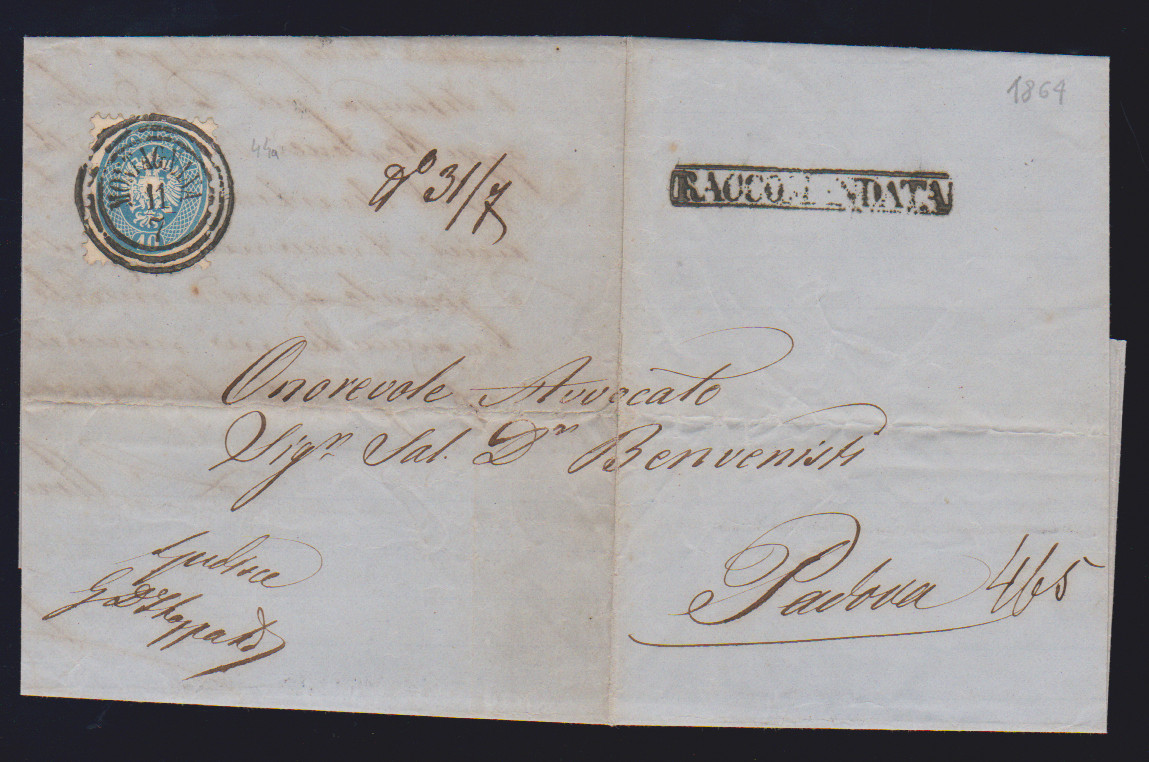 1864
44a
MONTAGNANA
11
7
10
31/7
RACCOMANDATA
Onorevole Avvocato
Sigr. Sal. Dr. Benvenisti
Padova 465